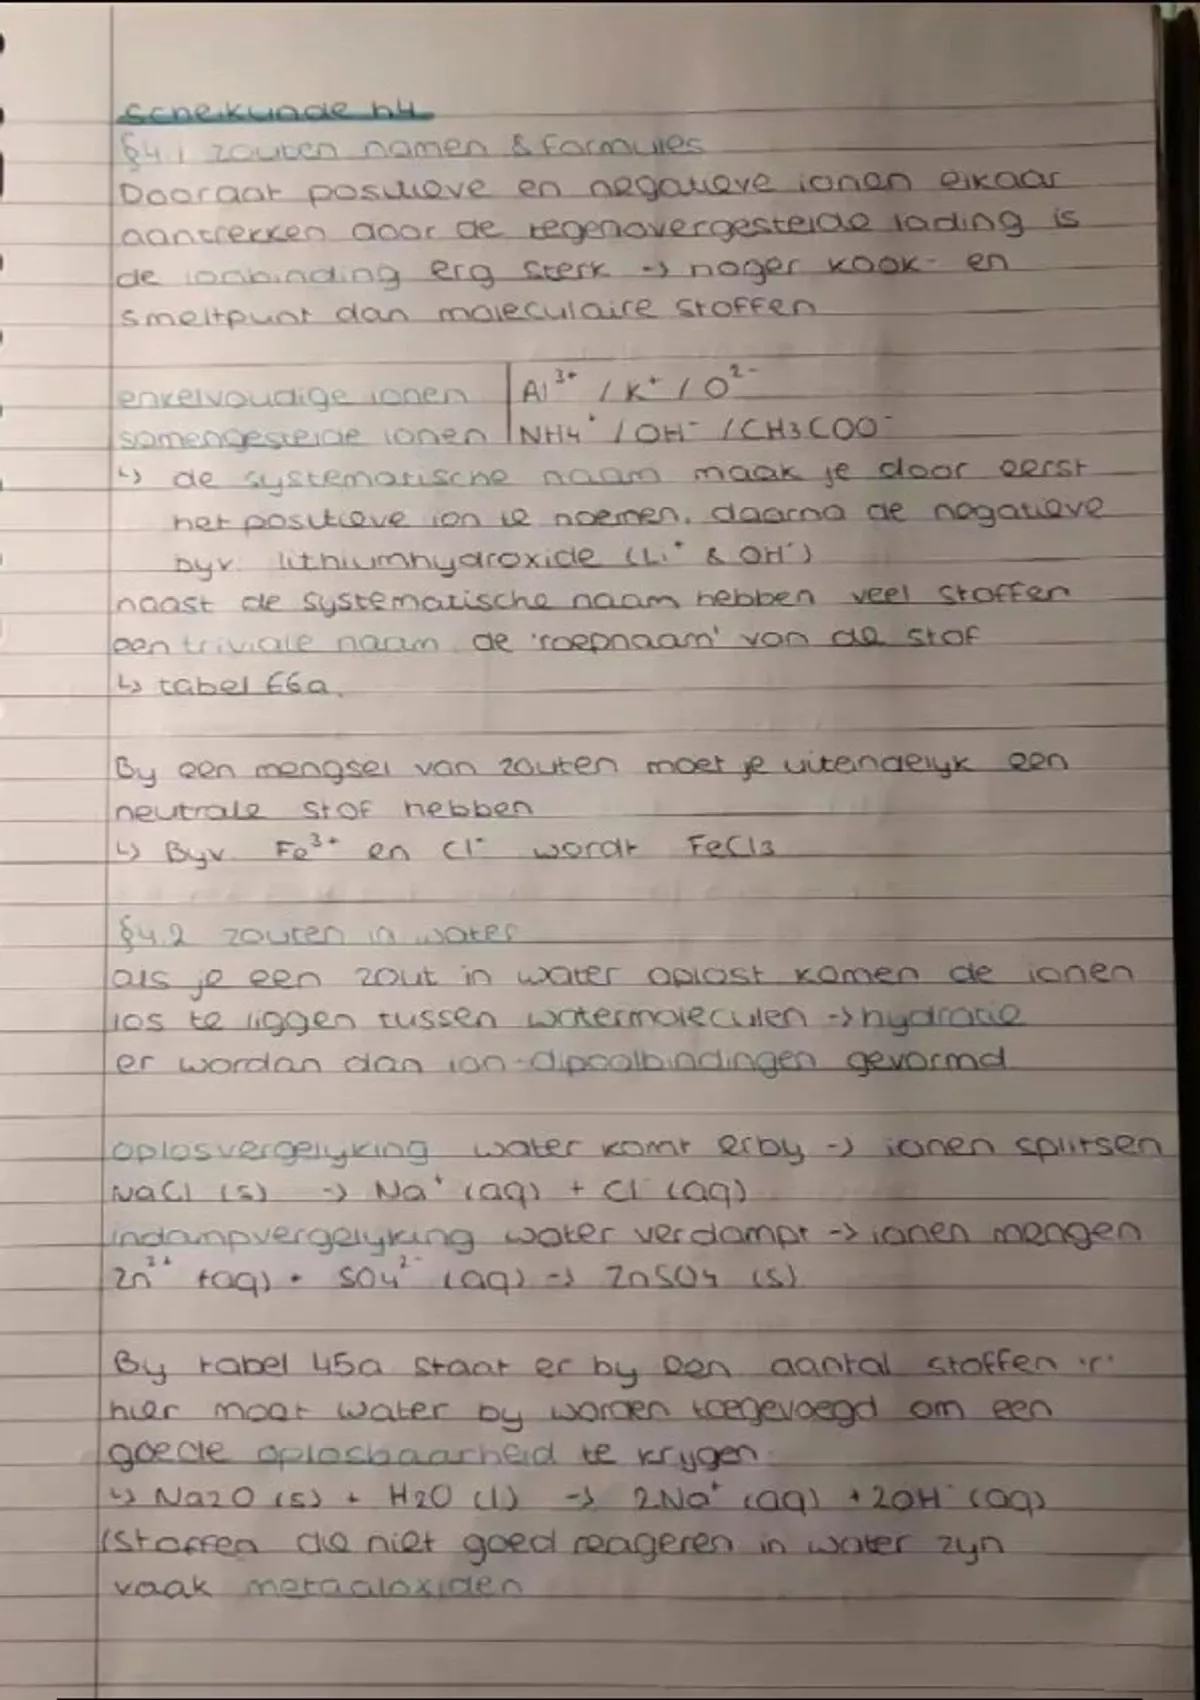 scheikunde h4
§4.1 zouten namen & formules
Doordat positieve en negatieve ionen elkaar
aantrekken door de tegenovergestelde lading is
de ionbinding erg sterk -> hoger kook- en
smeltpunt dan moleculaire stoffen
enkelvoudige ionen | Al³⁺ / K⁺ / O²⁻
samengestelde ionen | NH4⁺ / OH⁻ / CH3COO⁻
↳ de systematische naam maak je door eerst
het positieve ion te noemen, daarna de negatieve
byv. lithiumhydroxide (Li⁺ & OH⁻)
naast de systematische naam hebben veel stoffen
een triviale naam de 'roepnaam' van de stof
↳ tabel 66a.
By een mengsel van zouten moet je uiteindelyk een
neutrale stof hebben
↳ Byv. Fe³⁺ en Cl⁻ wordt FeCl3
§4.2 zouten in water
als je een zout in water oplost komen de ionen
los te liggen tussen watermoleculen -> hydratie
er worden dan ion-dipoolbindingen gevormd
oplosvergelyking water komt erby -> ionen splitsen
NaCl (s) -> Na⁺ (aq) + Cl⁻ (aq)
indampvergelyking water verdampt -> ionen mengen
Zn²⁺ (aq) + SO4²⁻ (aq) -> ZnSO4 (s)
By tabel 45a staat er by een aantal stoffen 'r'
hier moet water by worden toegevoegd om een
goede oplosbaarheid te krygen.
↳ Na2O (s) + H2O (l) -> 2Na⁺ (aq) + 2OH⁻ (aq)
(stoffen die niet goed reageren in water zyn
vaak metaaloxiden